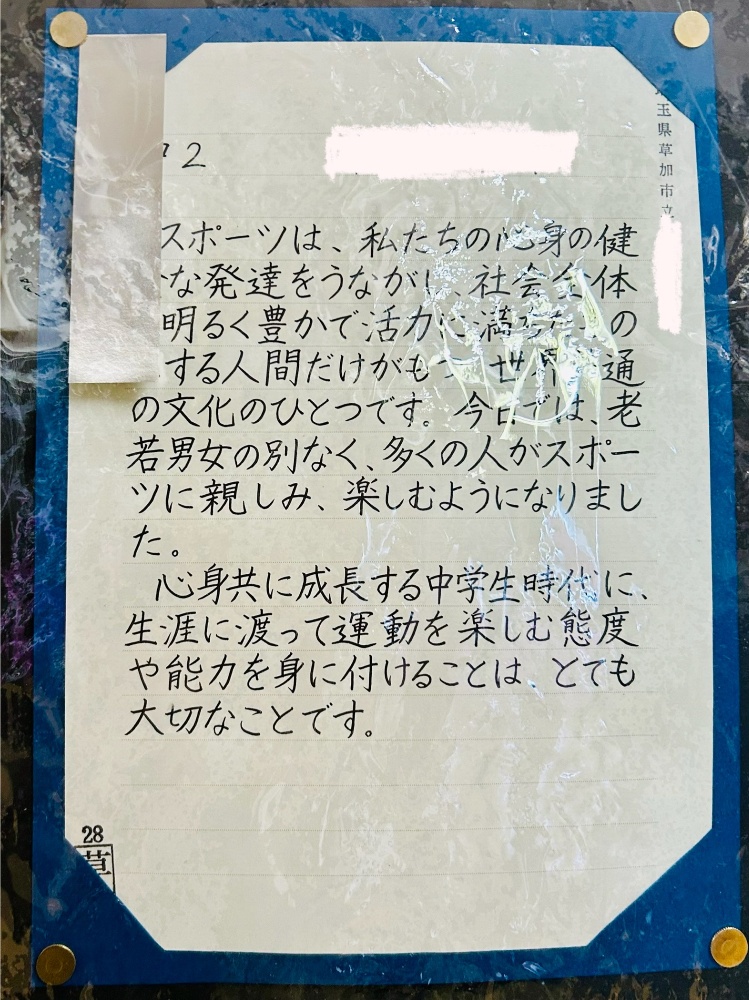 2
スポーツは、私たちの心身の健
な発達をうながし、社会全体
明るく豊かで活力に満ちた の
する人間だけがもつ 世界 通
の文化のひとつです。今日では、老
若男女の別なく、多くの人がスポー
ツに親しみ、楽しむようになりまし
た。
心身共に成長する中学生時代に、
生涯に渡って運動を楽しむ態度
や能力を身に付けることは、とても
大切なことです。
玉県草加市立
28
草